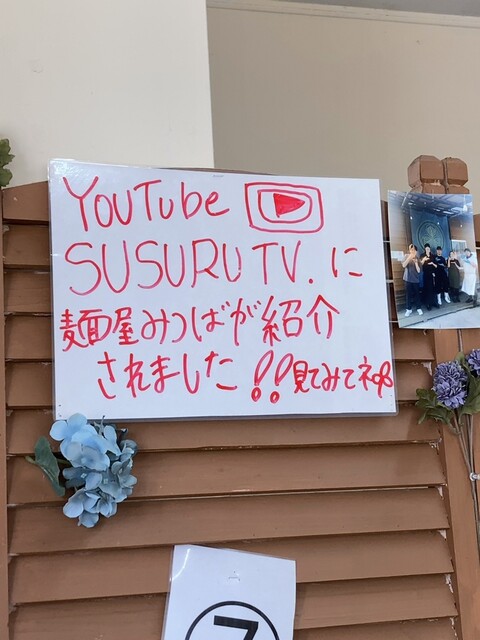 YouTube
SUSURU TV. に
麺屋みつばが紹介
されました!! 見てみてネ
7